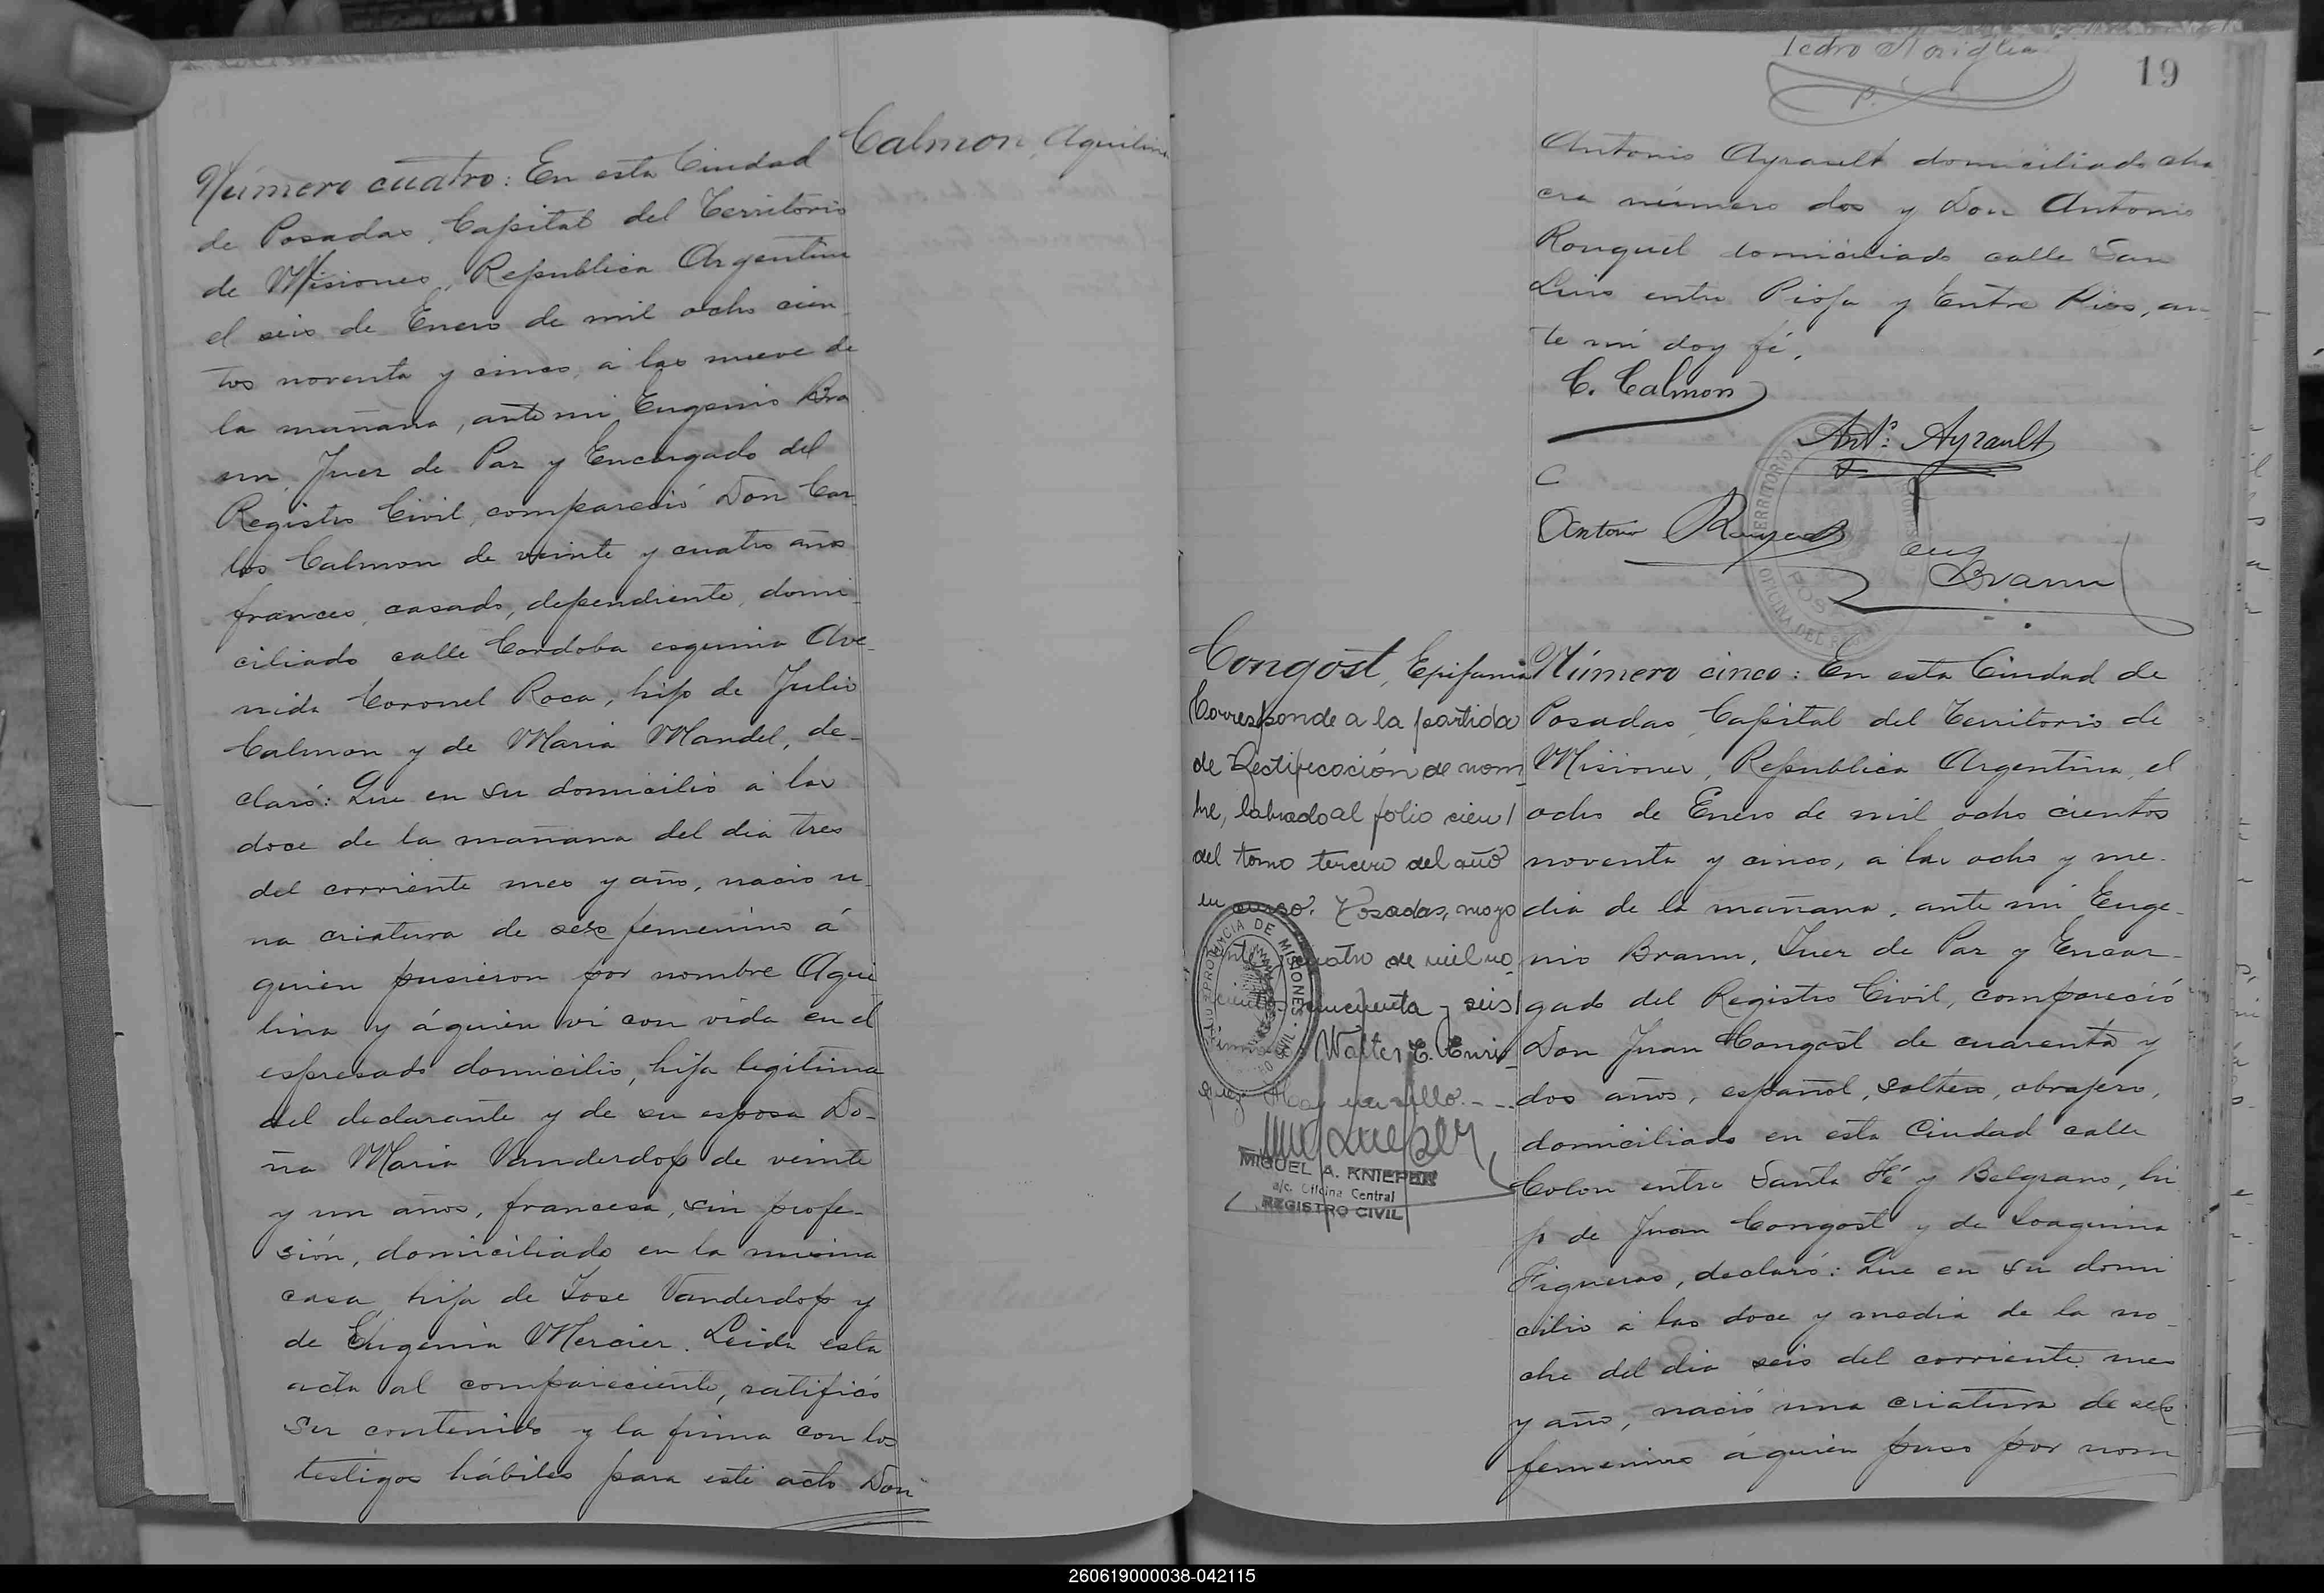 Calmon, Aquilina
Número cuatro: En esta Ciudad
de Posadas, Capital del Territorio
de Misiones, Republica Argentina
el seis de Enero de mil ocho cien
tos noventa y cinco, a las nueve de
la mañana, ante mi Eugenio Bra
un, Juez de Paz y Encargado del
Registro Civil, compareció Don Car
los Calmon de veinte y cuatro años
frances, casado, dependiente, domi
ciliado calle Cordoba esquina Ave-
nida Coronel Roca, hijo de Julio
Calmon y de Maria Mandel, de-
claró: Que en su domicilio a las
doce de la mañana del dia tres
del corriente mes y año, nacio u-
na criatura de sexo femenino á
quien pusieron por nombre Aqui
lina y áquien vi con vida en el
espresado domicilio, hija legitima
del declarante y de su esposa Do-
ña Maria Vanderdop de veinte
y un años, francesa, sin profe-
sión, domiciliado en la misma
casa, hija de Jose Vanderdop y
de Eugenia Mercier. Leida esta
acta al compareciente, ratificó
su contenido y la firma con los
testigos hábiles para este acto Don
Pedro
19
Antonio Ayrault domiciliado cha
cra número dos y Don Antonio
Ronquel domiciliado calle San
Luis entre Rioja y Entre Rios, an-
te mi doy fé.
C. Calmon
Ant.º Ayrault
C
Antonio
Eug Braun
TERRITORIO
OFICINA DEL
POS
Congost, Epifania
Corresponde a la partida
de Rectificación de nom
bre, labrado al folio cien
del tomo tercero del año
en curso. Posadas, mayo
cuatro de mil no
cientos cincuenta y seis
Walter E. Enri
quez Hay un sello. - -
PROVINCIA DE MISIONES
CIVIL
MIGUEL A. KNIEPER
a/c. Oficina Central
REGISTRO CIVIL
Número cinco: En esta Ciudad de
Posadas, Capital del Territorio de
Misiones, Republica Argentina, el
ocho de Enero de mil ocho cientos
noventa y cinco, a las ocho y me-
dia de la mañana, ante mi Euge-
nio Braun, Juez de Paz y Encar-
gado del Registro Civil, compareció
Don Juan Congost de cuarenta y
dos años, español, soltero, obrajero,
domiciliado en esta Ciudad calle
Colon entre Santa Fé y Belgrano, hi
jo de Juan Congost y de Joaquina
Figueras, declaró: Que en su domi
cilio a las doce y media de la no-
che del dia seis del corriente mes
y año, nació una criatura de sexo
femenino áquien puso por nom
260619000038-042115